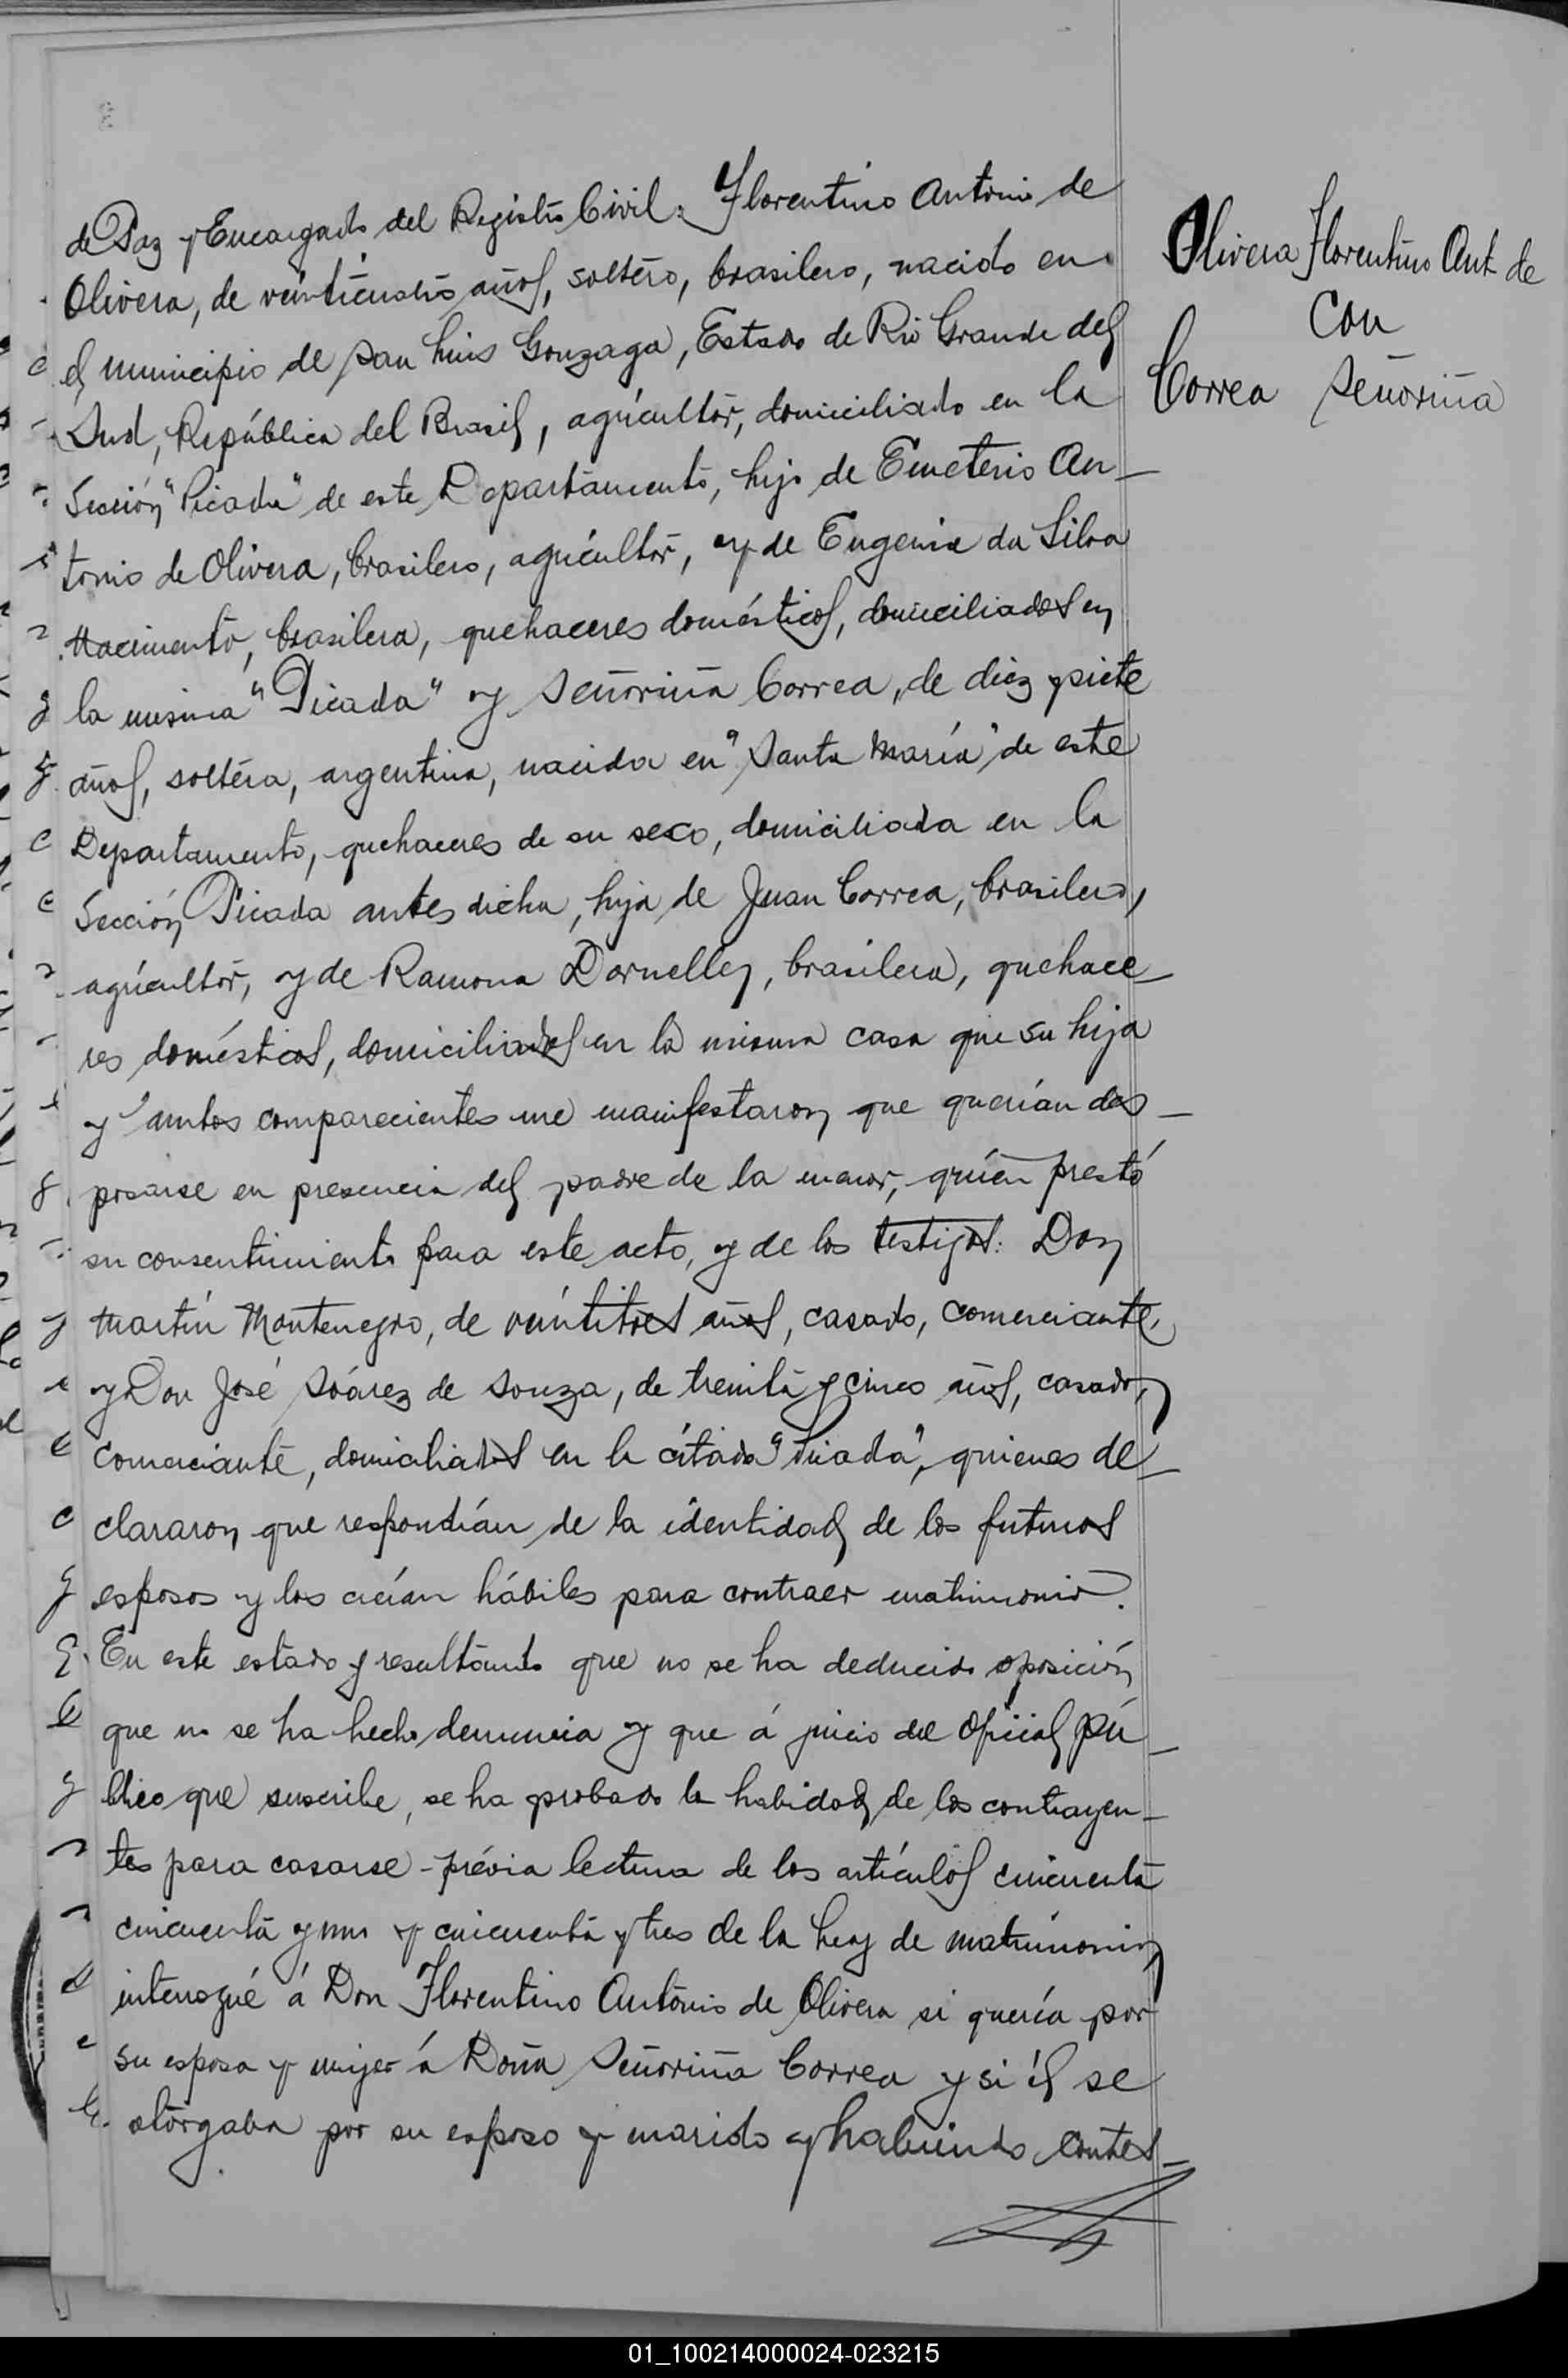 de Paz y Encargado del Registro Civil: Florentino Antonio de
Olivera, de veinticuatro años, soltero, brasilero, nacido en
el municipio de San Luis Gonzaga, Estado de Rio Grande del
Sud, República del Brasil, agricultor, domiciliado en la
Sección "Picada" de este Departamento, hijo de Emeterio An-
tonio de Olivera, brasilero, agricultor, y de Eugenia da Silva
Nacimento, brasilera, quehaceres domésticos, domiciliados en
la misma "Picada" y Señoriña Correa, de diez y siete
años, soltera, argentina, nacida en "Santa María" de este
Departamento, quehaceres de su sexo, domiciliada en la
Sección Picada antes dicha, hija de Juan Correa, brasilero,
agricultor, y de Ramona Dornelles, brasilera, quehace-
res domésticos, domiciliados en la misma casa que su hija
y ambos comparecientes me manifestaron que querían des-
posarse en presencia del padre de la menor, quién prestó
su consentimiento para este acto, y de los testigos: Don
Martín Montenegro, de veintitres años, casado, comerciante,
y Don José Soárez de Souza, de treinta y cinco años, casado,
comerciante, domiciliados en la citada "Picada", quienes de-
clararon que respondían de la identidad de los futuros
esposos y los creían hábiles para contraer matrimonio.
En este estado y resultando que no se ha deducido oposición
que no se ha hecho denuncia y que á juicio del Oficial Pú-
blico que suscribe, se ha probado la habidad de los contrayen-
tes para casarse - prévia lectura de los artículos cincuenta
cincuenta y uno y cincuenta y tres de la Ley de matrimonio
interrogué á Don Florentino Antonio de Olivera si quería por
su esposa y mujer á Doña Señoriña Correa y si él se
otorgaba por su esposo y marido y habiendo contes-
Olivera Florentino Ant. de
con
Correa Señoriña
01_100214000024-023215